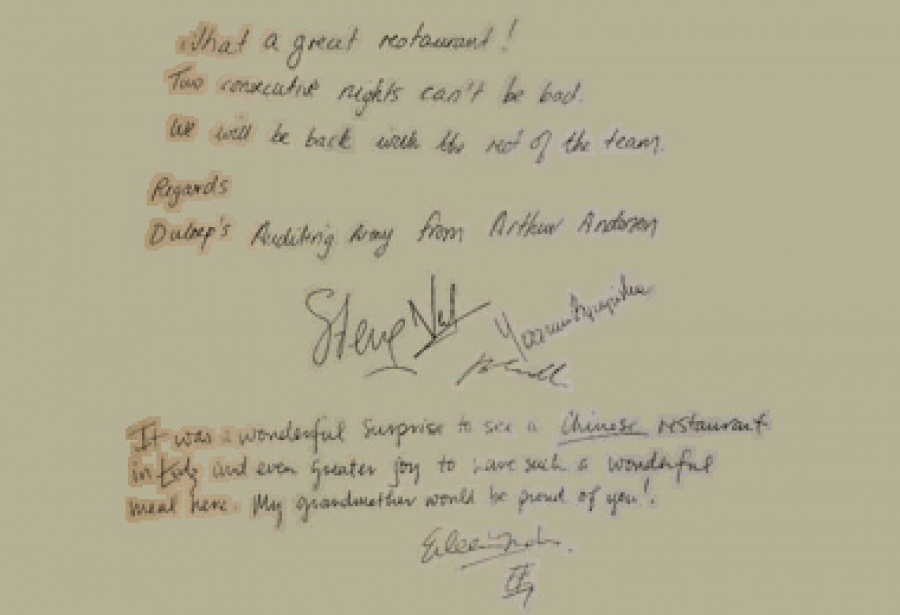 What a great restaurant!
Two consecutive nights can't be bad.
We will be back with the rest of the team.
Regards
Duleep's Auditing Army from Arthur Andersen
Steve
It was a wonderful surprise to see a Chinese restaurant
in and even greater joy to have such a wonderful
meal here. My grandmother would be proud of you!
Eileen